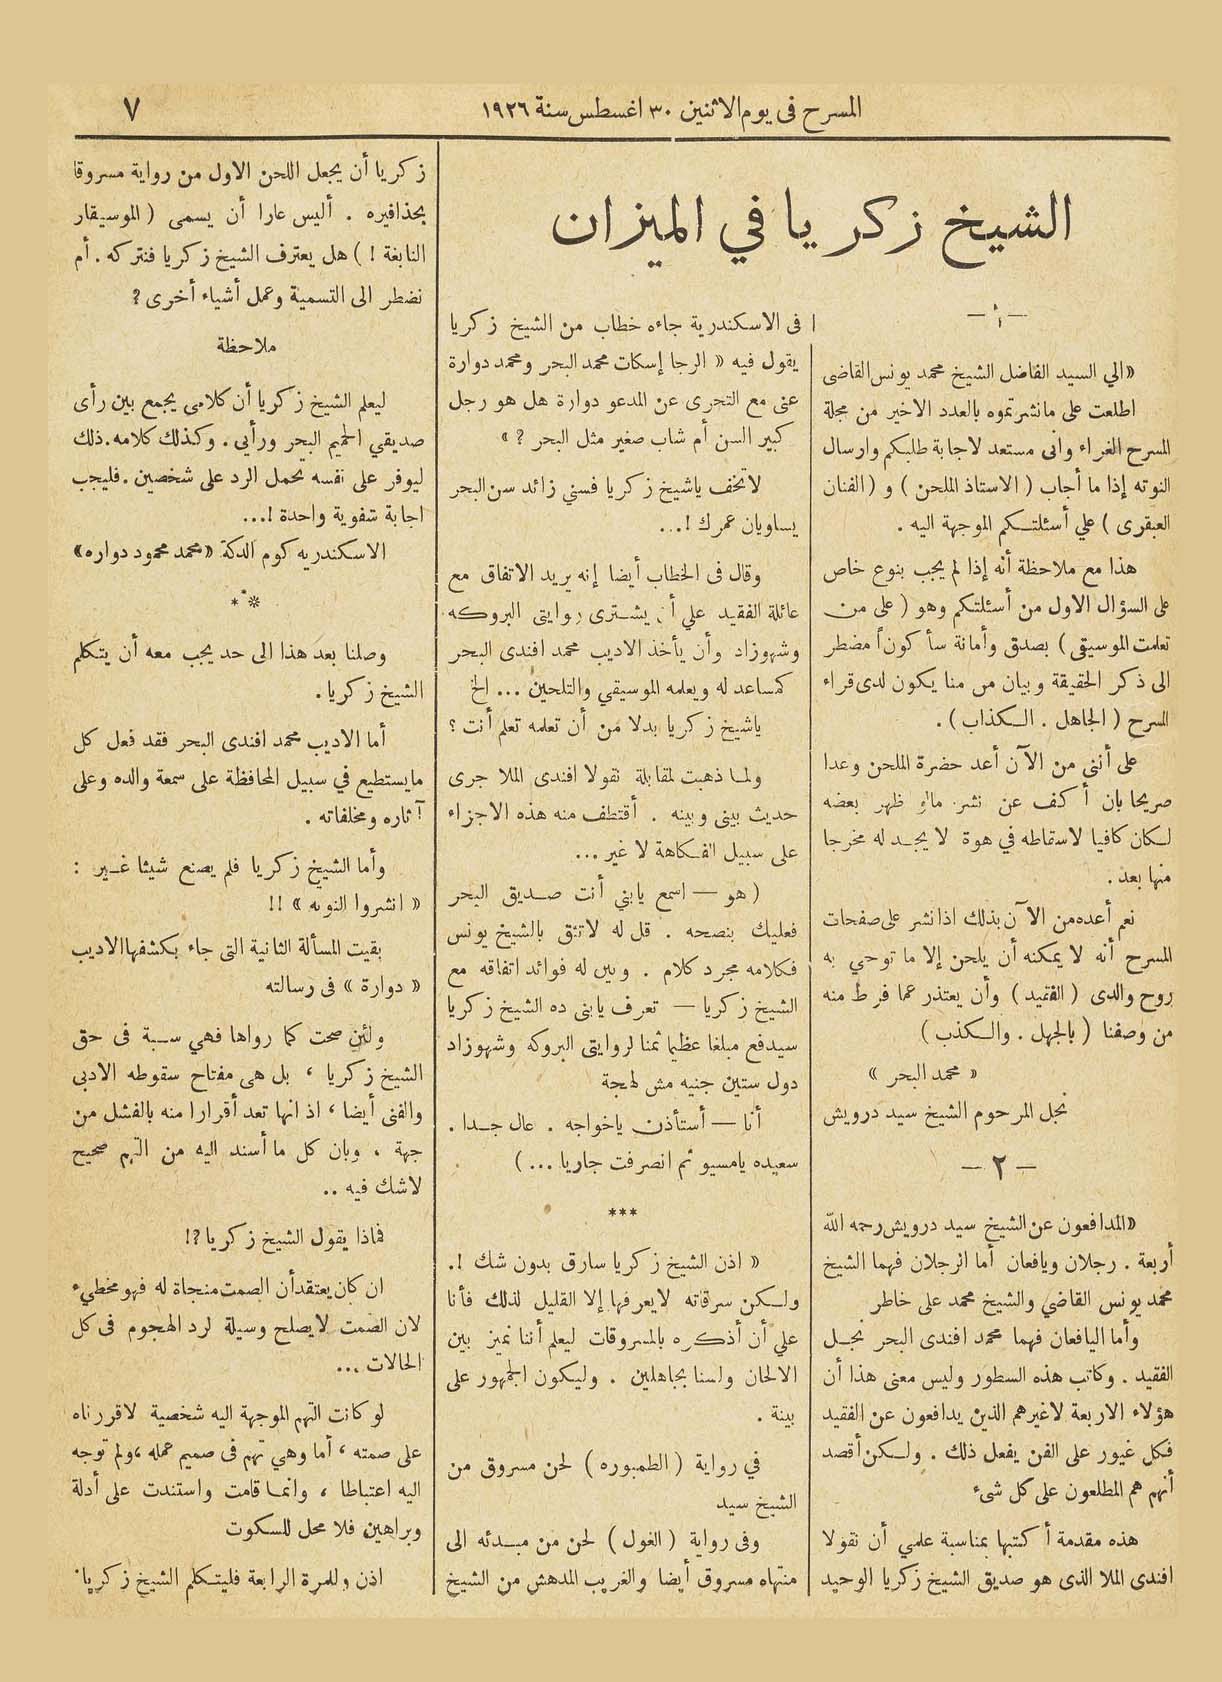 المسرح فى يوم الاثنين ٣٠ اغسطس سنة ١٩٢٦
٧
الشيخ زكريا في الميزان
— ١ —
«الي السيد الفاضل الشيخ محمد يونس القاضى
اطلعت على مانشرتموه بالعدد الاخير من مجلة
المسرح الغراء وانى مستعد لاجابة طلبكم وارسال
النوته إذا ما أجاب ( الاستاذ الملحن ) و ( الفنان
العبقرى ) علي أسئلتكم الموجهة اليه .
هذا مع ملاحظة أنه إذا لم يجب بنوع خاص
على السؤال الاول من أسئلتكم وهو ( على من
تعلمت الموسيقى ) بصدق وأمانة سأكون اً مضطر
الى ذكر الحقيقة وبيان من منا يكون لدى قراء
المسرح ( الجاهل . الكذاب ) .
على أننى من الآن أعد حضرة الملحن وعدا
صريحا بان أكف عن نشر مالو ظهر بعضه
لكان كافيا لاسقاطه في هوة لا يجد له مخرجا
منها بعد .
نعم أعده من الآن بذلك اذا نشر على صفحات
المسرح أنه لا يمكنه أن يلحن إلا ما توحي به
روح والدى ( الفقيد ) وأن يعتذر عما فرط منه
من وصفنا ( بالجهل . والكذب )
« محمد البحر »
نجل المرحوم الشيخ سيد درويش
— ٢ —
«المدافعون عن الشيخ سيد درويش رحمه الله
أربعة . رجلان ويافعان أما الرجلان فهما الشيخ
محمد يونس القاضي والشيخ محمد على خاطر
وأما اليافعان فهما محمد افندى البحر نجل
الفقيد . وكاتب هذه السطور وليس معنى هذا أن
هؤلاء الاربعة لاغيرهم الذين يدافعون عن الفقيد
فكل غيور على الفن يفعل ذلك . ولكن أقصد
أنهم هم المطلعون على كل شىء
هذه مقدمة أكتبها بمناسبة علمي أن نقولا
افندى الملا الذى هو صديق الشيخ زكريا الوحيد
فى الاسكندرية جاءه خطاب من الشيخ زكريا
يقول فيه « الرجا إسكات محمد البحر ومحمد دوارة
عنى مع التحرى عن المدعو دوارة هل هو رجل
كبير السن أم شاب صغير مثل البحر ? »
لاتخف ياشيخ زكريا فسني زائد سن البحر
يساويان عمرك !...
وقال فى الخطاب أيضا إنه يريد الاتفاق مع
عائلة الفقيد علي أن يشترى روايتى البروكه
وشهوزاد وأن يأخذ الاديب محمد افندى البحر
كمساعد له ويعلمه الموسيقي والتلحين ... الخ
ياشيخ زكريا بدلا من أن تعلمه تعلم أنت ؟
ولما ذهبت لمقابلة نقولا افندى الملا جرى
حديث بينى وبينه . أقتطف منه هذه الاجزاء
على سبيل الفكاهة لا غير ...
( هو — اسمع يابني أنت صديق البحر
فعليك بنصحه . قل له لاتثق بالشيخ يونس
فكلامه مجرد كلام . وبين له فوائد اتفاقه مع
الشيخ زكريا — تعرف يابنى ده الشيخ زكريا
سيدفع مبلغا عظيما ثمنا لروايتى البروكه وشهوزاد
دول ستين جنيه مش لهجة
أنا — أستأذن ياخواجه . عال جدا .
سعيده يامسيو ثم انصرفت جاريا ... )
***
« اذن الشيخ زكريا سارق بدون شك !.
ولكن سرقاته لايعرفها إلا القليل لذلك فأنا
علي أن أذكره بالمسروقات ليعلم أننا نميز بين
الالحان ولسنا بجاهلين . وليكون الجمهور على
بينة .
في رواية ( الطمبوره ) لحن مسروق من
الشيخ سيد
وفى رواية ( الغول ) لحن من مبدئه الى
منتهاه مسروق أيضا والغريب المدهش من الشيخ
زكريا أن يجعل اللحن الاول من رواية مسروقا
بحذافيره . أليس عارا أن يسمى ( الموسيقار
النابغة ! ) هل يعترف الشيخ زكريا فنتركه . أم
نضطر الى التسمية وعمل أشياء أخرى ?
ملاحظة
ليعلم الشيخ زكريا أن كلامى يجمع بين رأى
صديقي الحميم البحر ورأبى . وكذلك كلامه.ذلك
ليوفر على نفسه تحمل الرد على شخصين . فليجب
اجابة شفوية واحدة !...
الاسكندريه كوم الدكة «محمد محمود دواره»
***
وصلنا بعد هذا الى حد يجب معه أن يتكلم
الشيخ زكريا .
أما الاديب محمد افندى البحر فقد فعل كل
مايستطيع في سبيل المحافظة على سمعة والده وعلى
آثاره ومخلفاته .
وأما الشيخ زكريا فلم يصنع شيئا غير :
« انشروا النوته » !!
بقيت المسألة الثانية التى جاء بكشفها الاديب
« دوارة » فى رسالته
ولئن صحت كما رواها فهي سبة فى حق
الشيخ زكريا ، بل هى مفتاح سقوطه الادبى
والفنى أيضا ، اذ انها تعد أقرارا منه بالفشل من
جهة ، وبان كل ما أسند اليه من التهم صحيح
لاشك فيه ..
فماذا يقول الشيخ زكريا ?!
ان كان يعتقد أن الصمت منجاة له فهو مخطىء
لان الصمت لايصلح وسيلة لرد الهجوم فى كل
الحالات ...
لو كانت التهم الموجهة اليه شخصية لاقررناه
على صمته ، أما وهي تهم فى صميم عمله ، ولم توجه
اليه اعتباطا ، وانما قامت واستندت على أدلة
وبراهين فلا محل للسكوت
اذن وللمرة الرابعة فليتكلم الشيخ زكريا .